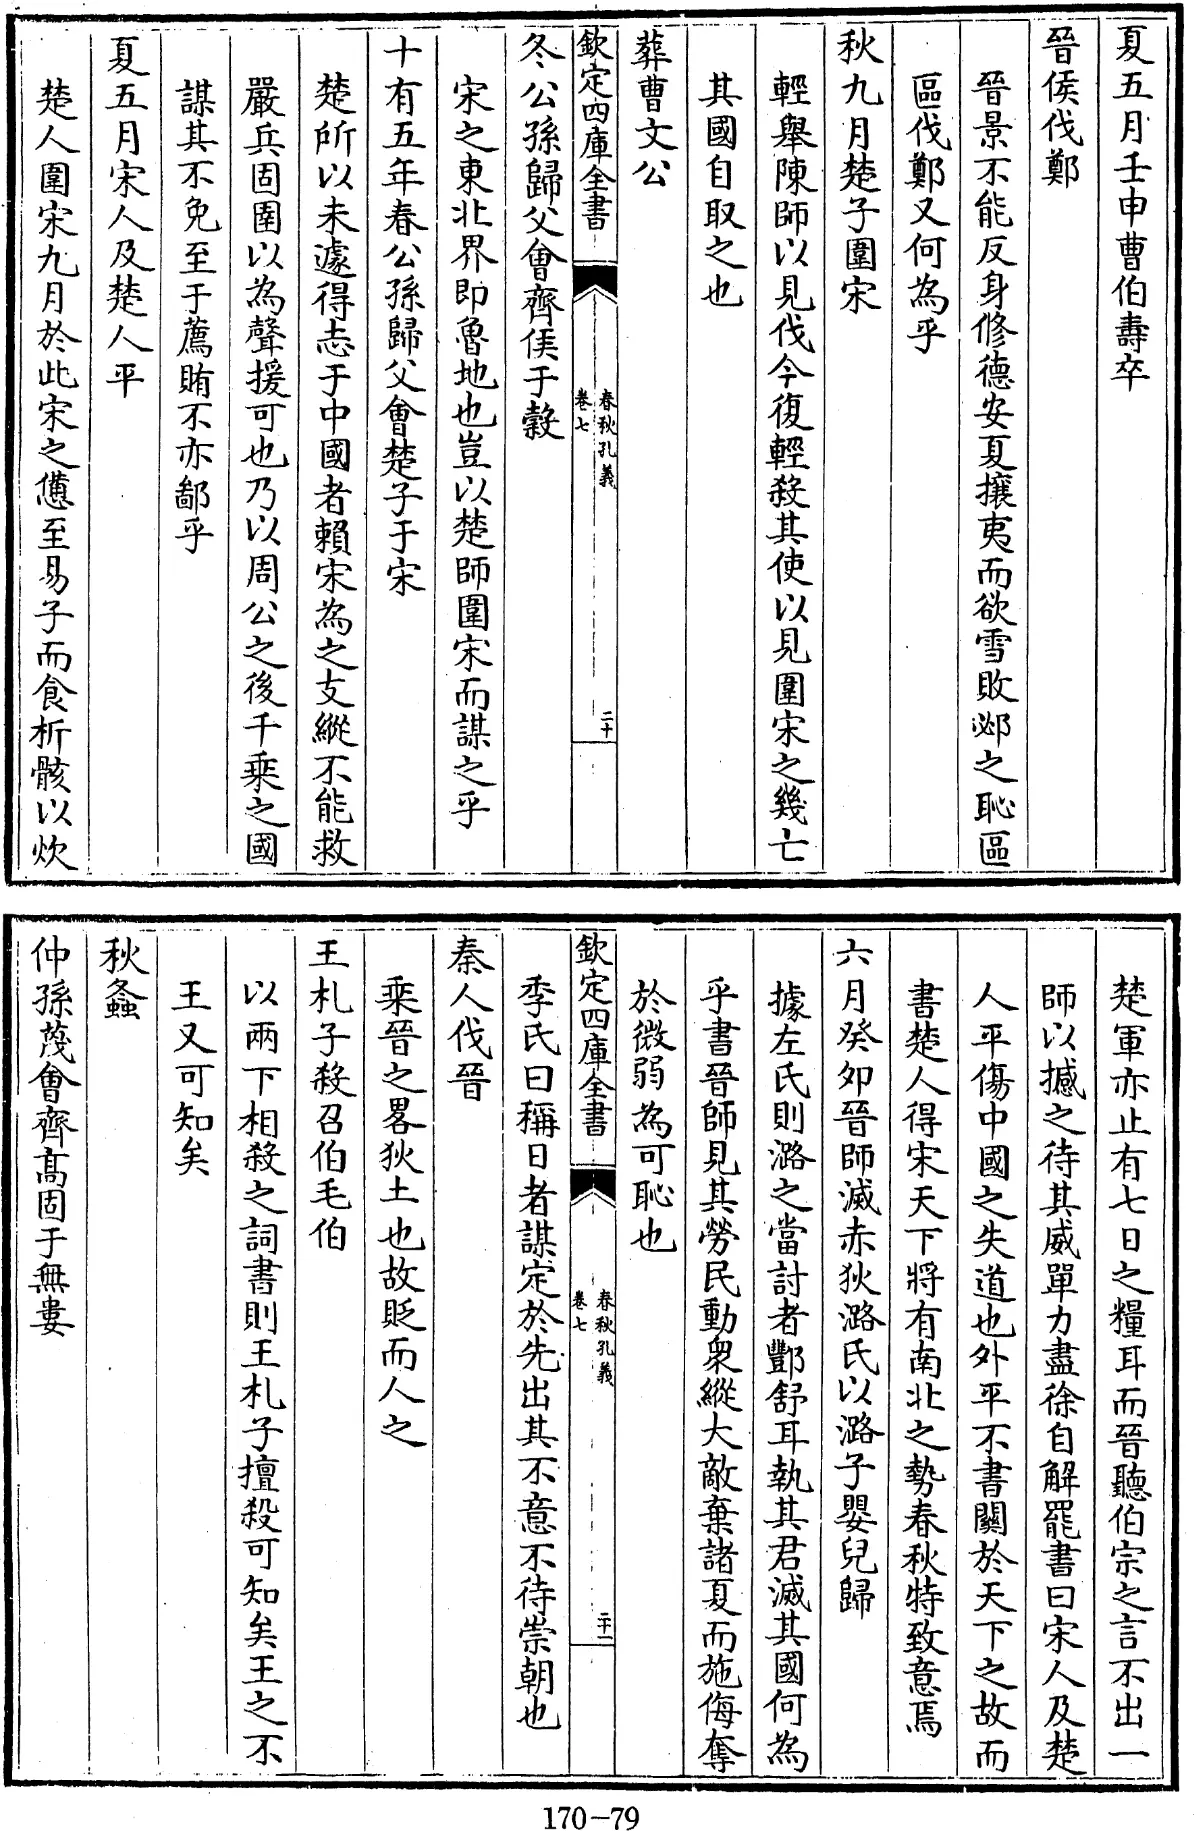 夏五月壬申曹伯壽卒
晉侯伐鄭
晉景不能反身修德安夏攘夷而欲雪敗邲之恥區
區伐鄭又何為乎
秋九月楚子圍宋
輕舉陳師以見伐今復輕殺其使以見圍宋之幾亡
其國自取之也
葬曹文公
欽定四庫全書
春秋孔義
卷七
二十
冬公孫歸父會齊侯于穀
宋之東北界即魯地也豈以楚師圍宋而謀之乎
十有五年春公孫歸父會楚子于宋
楚所以未遽得志于中國者賴宋為之支縱不能救
嚴兵固圉以為聲援可也乃以周公之後千乗之國
謀其不免至于薦賄不亦鄙乎
夏五月宋人及楚人平
楚人圍宋九月於此宋之憊至易子而食析骸以炊
楚軍亦止有七日之糧耳而晉聽伯宗之言不出一
師以撼之待其威單力盡徐自解罷書曰宋人及楚
人平傷中國之失道也外平不書關於天下之故而
書楚人得宋天下將有南北之勢春秋特致意焉
六月癸卯晉師滅赤狄潞氏以潞子嬰兒歸
據左氏則潞之當討者酆舒耳執其君滅其國何為
乎書晉師見其勞民動衆縱大敵棄諸夏而施侮奪
於微弱為可恥也
欽定四庫全書
春秋孔義
卷七
二十一
季氏曰稱日者謀定於先出其不意不待崇朝也
秦人伐晉
乗晉之畧狄土也故貶而人之
王札子殺召伯毛伯
以兩下相殺之詞書則王札子擅殺可知矣王之不
王又可知矣
秋螽
仲孫蔑會齊髙固于無婁
170-79